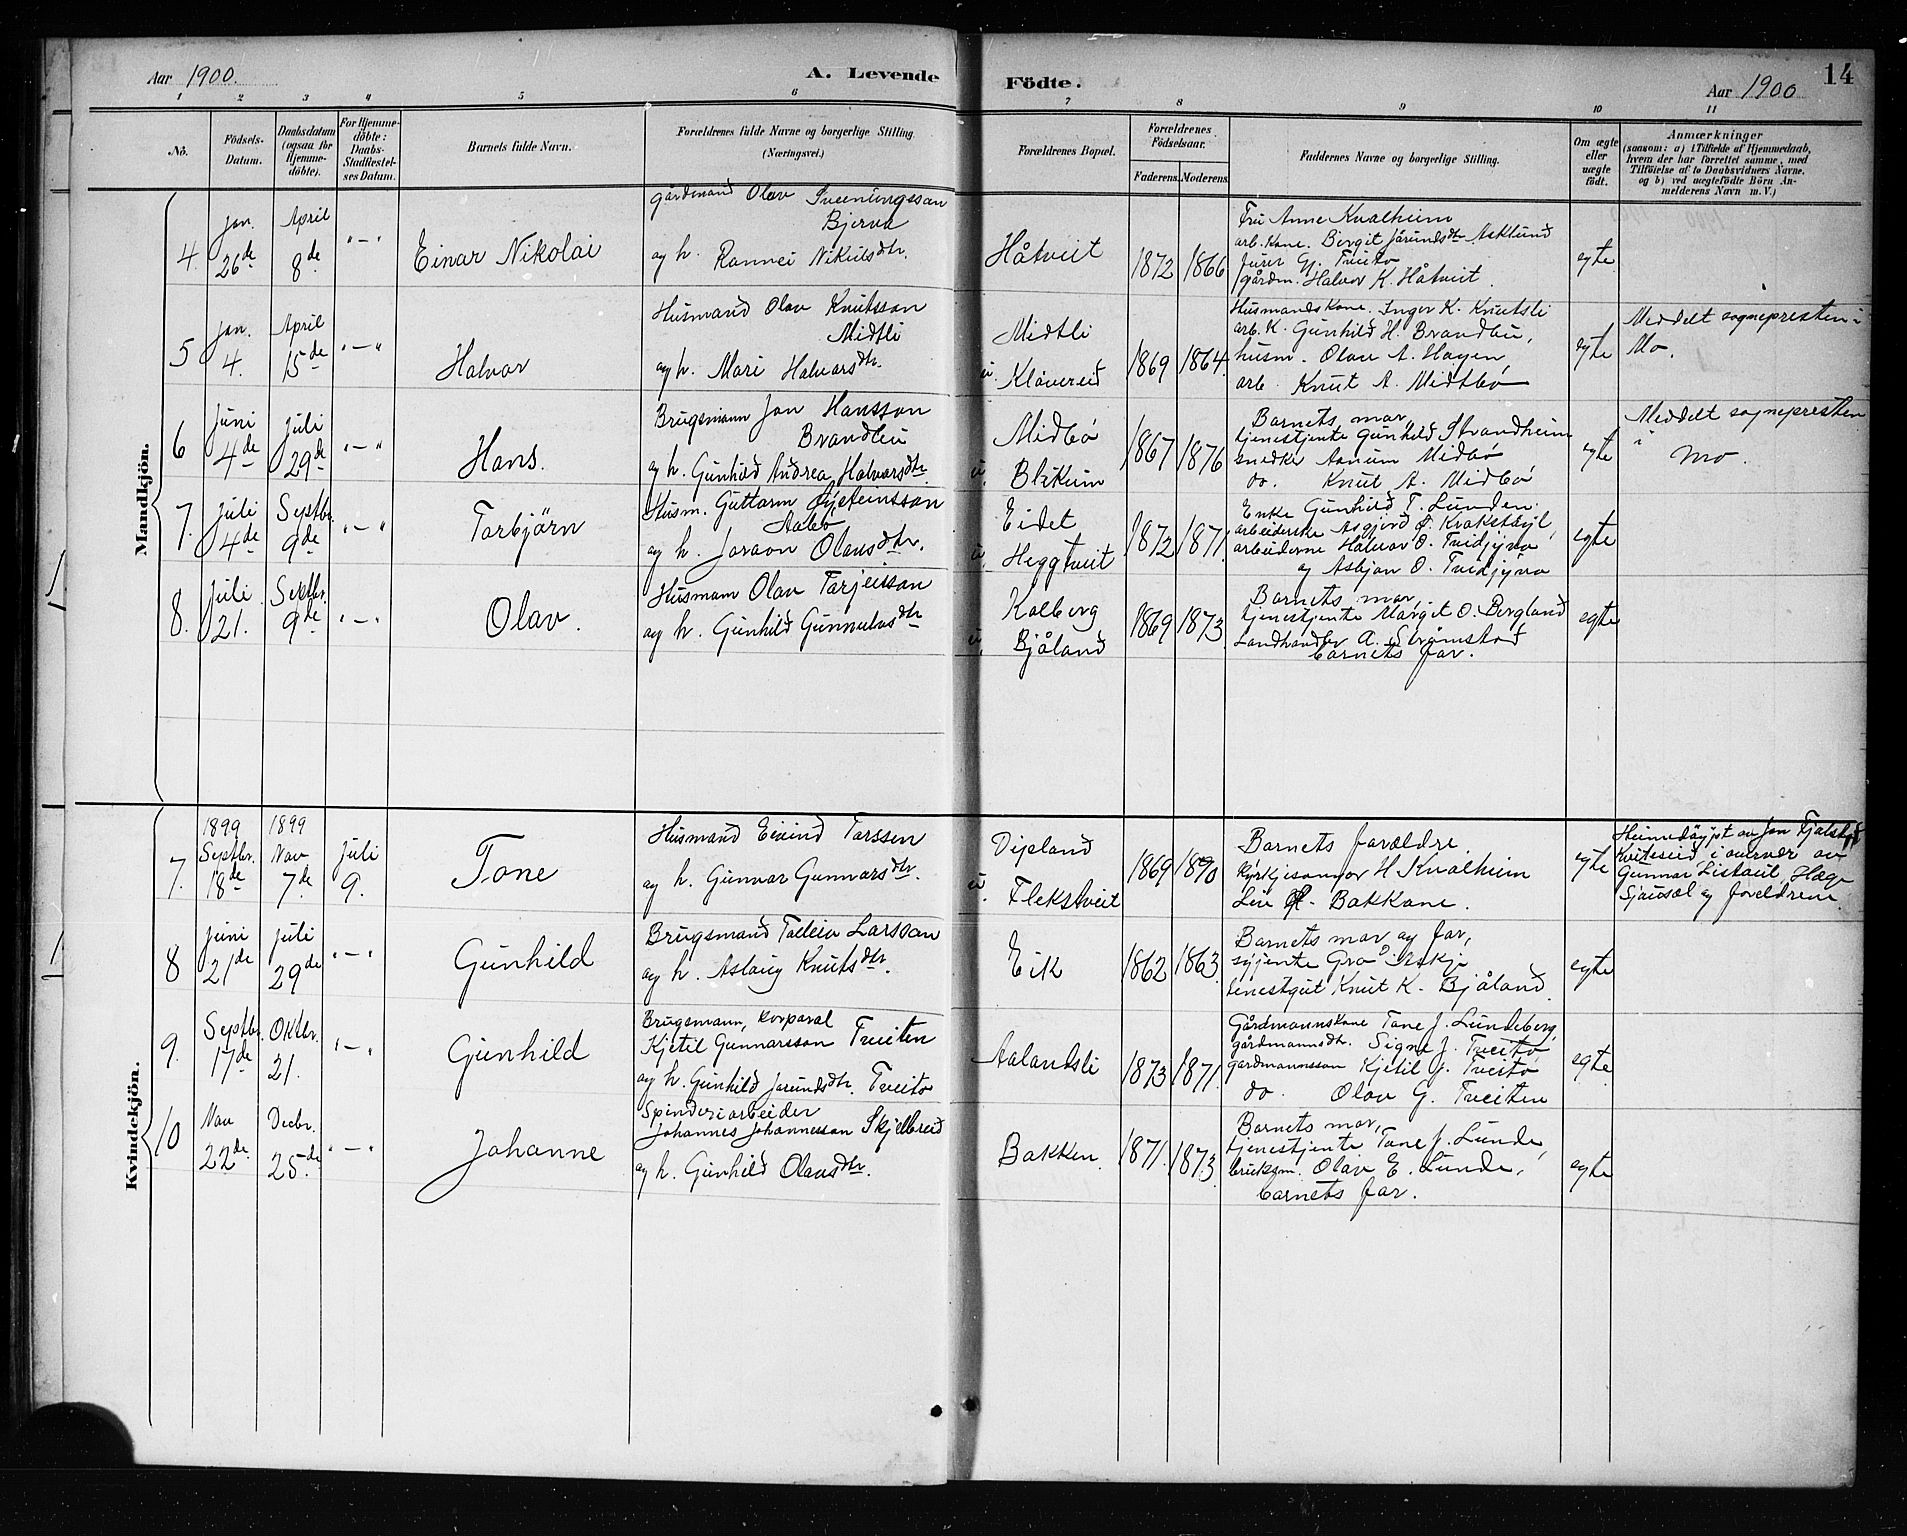 Aar 1900.
A. Levende
Födte.
Aar 1900
14
1 2 3 4 5 6 7 8 9 10 11
No.
Födsels-Datum.
Daabsdatum (ogsaa for Hjemmedöbte).
For Hjemmedöbte: Daabs-Stadfæstelses Datum.
Barnets fulde Navn.
Forældrenes fulde Navne og borgerlige Stilling.
(Næringsvei.)
Forældrenes Bopæl.
Forældrenes Födselsaar.
Faderens. Moderens.
Faddernes Navne og borgerlige Stilling.
Om ægte eller uægte födt.
Anmærkninger
(saasom: a) i Tilfælde af Hjemmedaab, hvem der har forrettet samme, med Tilföielse af to Daabsvidners Navne, og b) ved uægtefödte Börn Anmelderens Navn m. V.)
Mandkjön.
4. Jan. 26de April 8de "-"
Einar Nikolai
gårdmand Olav Sveinungsson
Bjerva
og h. Rannei Nikulsdtr.
Håtveit
1872 1866
Fru Anne Kvalheim
arb. kone. Birgit Jörundsdtr Asklund
Gj. Tveito
gårdm. Halvor K. Håtveit.
egte
5 Jan. 4. April 15de "-"
Halvor
Husmand Olav Knutsson
Midtli
og h. Mari Halvorsdtr.
Midtli
u. Klövereid
1869 1864
Husmandskone. Inger K. Knutsli
arb. k. Gunhild H. Brandlii,
husm. Olav A. Hagen
arb. Knut A. Midtbö
egte
Meddelt sognepresten i
Mo.
6 Juni 4de Juli 29de "-"
Hans.
Brugsmann Jon Hansson
Brandlii
og h. Gunhild Andrea Halvorsdtr.
Midbö
u. Blikum
1867 1876
Barnets mor,
tjenestjente Gunhild Strandheim
snedker Aanum Midbö
do. Knut A. Midbö
egte
Meddelt sognepresten
i Mo.
7. Juli 4de Septbr. 9de "-"
Torbjörn
Husm. Guttorm Öysteinsson
Aabö
og h. Joraan Olavsdtr.
Eidet
u. Heggtveit
1872 1871.
Enke Gunhild T. Lunden.
arbeiderske Asgjerd
arbeiderne Halvor O. Tvidjynó
og Asbjön O. Tvidjyno
egte
8. Juli 21. Septbr. 9de "-"
Olav.
Husmann Olav Torjeisson
og h. Gunhild Gunnulvsdtr
Kolberg
u. Bjåland
1869 1873
Barnets mor,
tjenestjente Margit O. Bergland
Landhandler A. Strömstad
barnets far.
egte
Kvindekjön.
7. 1899 Septbr. 18de 1899 Nov 7de Juli 9.
Tone
Husmand Eivind Torssen
og h. Gunvor Gunnarsdtr.
Vipland
u. Flekstveit
1869 1870
Barnets forældre.
kyrkjesongor H Kvalheim
Bakkane.
egte
Heimedöypt av Jon Fjalstyft
Kviteseid, i överver av
Gunnar Listaul, Hæge
og foreldrene
8 Juni 21de Juli 29de "-"
Gunhild
Brugsmand Talleiv Larsson
og h. Aslaug Knutsdtr.
Eik
1862 1863
Barnets mor og far,
syjente Gro Askje
tenestgut Knut K. Bjåland
egte
9. Septbr. 17de Oktbr. 21. "-"
Gunhild
Brugsmann, korporal
Kjetil Gunnarsson Tveiten
og h. Gunhild Jorundsdtr. Tveito
Aalandsli
1873 1871.
Gårdmannskone Tone J. Lundeberg,
gårdmannsdtr. Signe J. Tveito,
gardmannsson Kjetil J. Tveito
do. Olav G. Tveiten
egte
10 Nov 22de. Decbr. 25de. "-"
Johanne
Spinderiarbeider
Johannes Johannesson Skjelbreid
og h. Gunhild Olavsdtr.
Bakken.
1871. 1873.
Barnets mor,
tjenestjente Tone J. Lunde,
bruksm. Olav E. Lunde,
barnets far.
egte